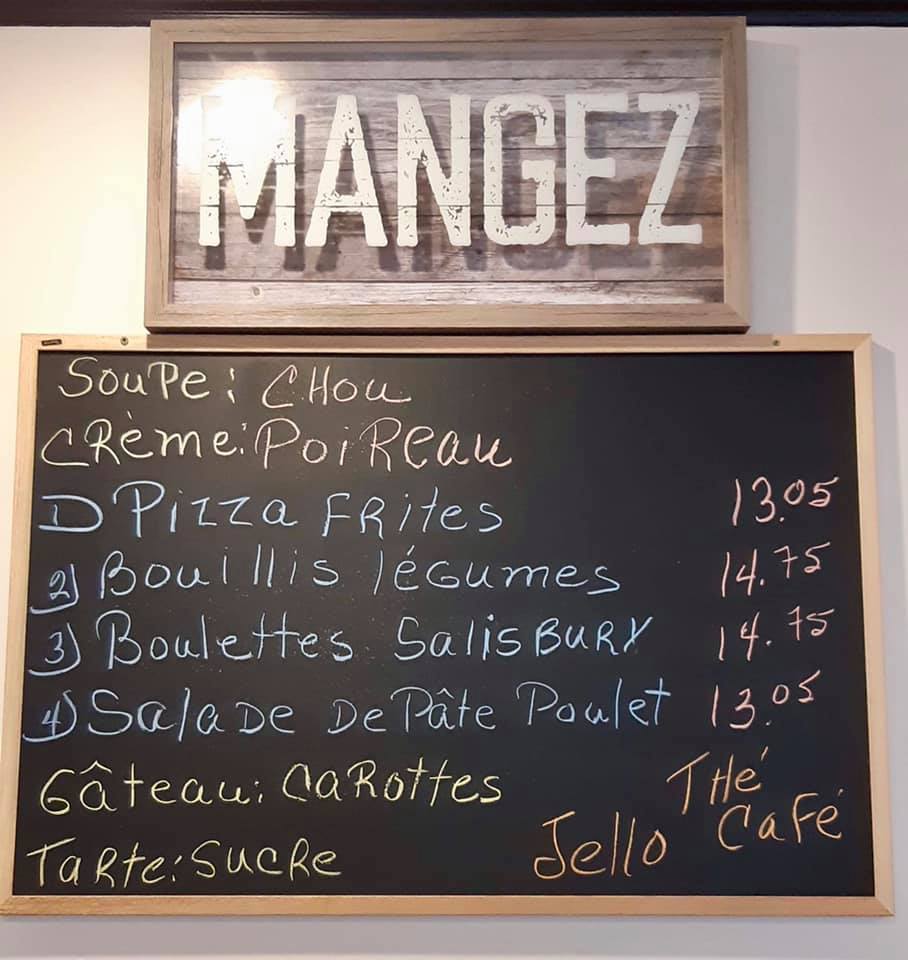 MANGEZ
Soupe: CHou
CRème: PoiReau
1) Pizza FRites 13.05
2) Bouillis légumes 14.75
3) Boulettes SalisBURY 14.75
4) Salade De Pâte Poulet 13.05
Gâteau: CaRottes
THé
Café
Tarte: Sucre
Jello